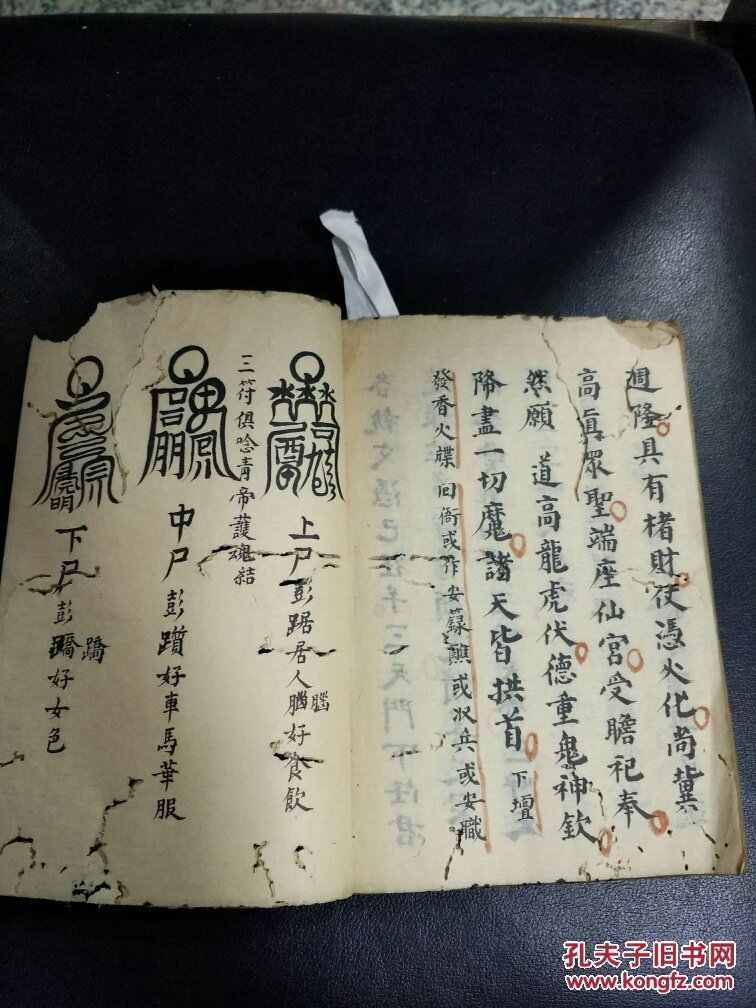 週隆具有楮財伏憑火化尚冀
高眞眾聖端座仙宮受瞻祀奉
然願 道高龍虎伏德重鬼神欽
降盡一切魔諸天皆拱首 下壇
發香火牒回衙或作安籙醮或收兵或安職
上尸彭踞居人腦好食飲
腦
三符俱唸青帝護魂結
中尸彭躓好車馬華服
下尸彭蹻好女色
蹻
孔夫子旧书网
www.kongfz.com